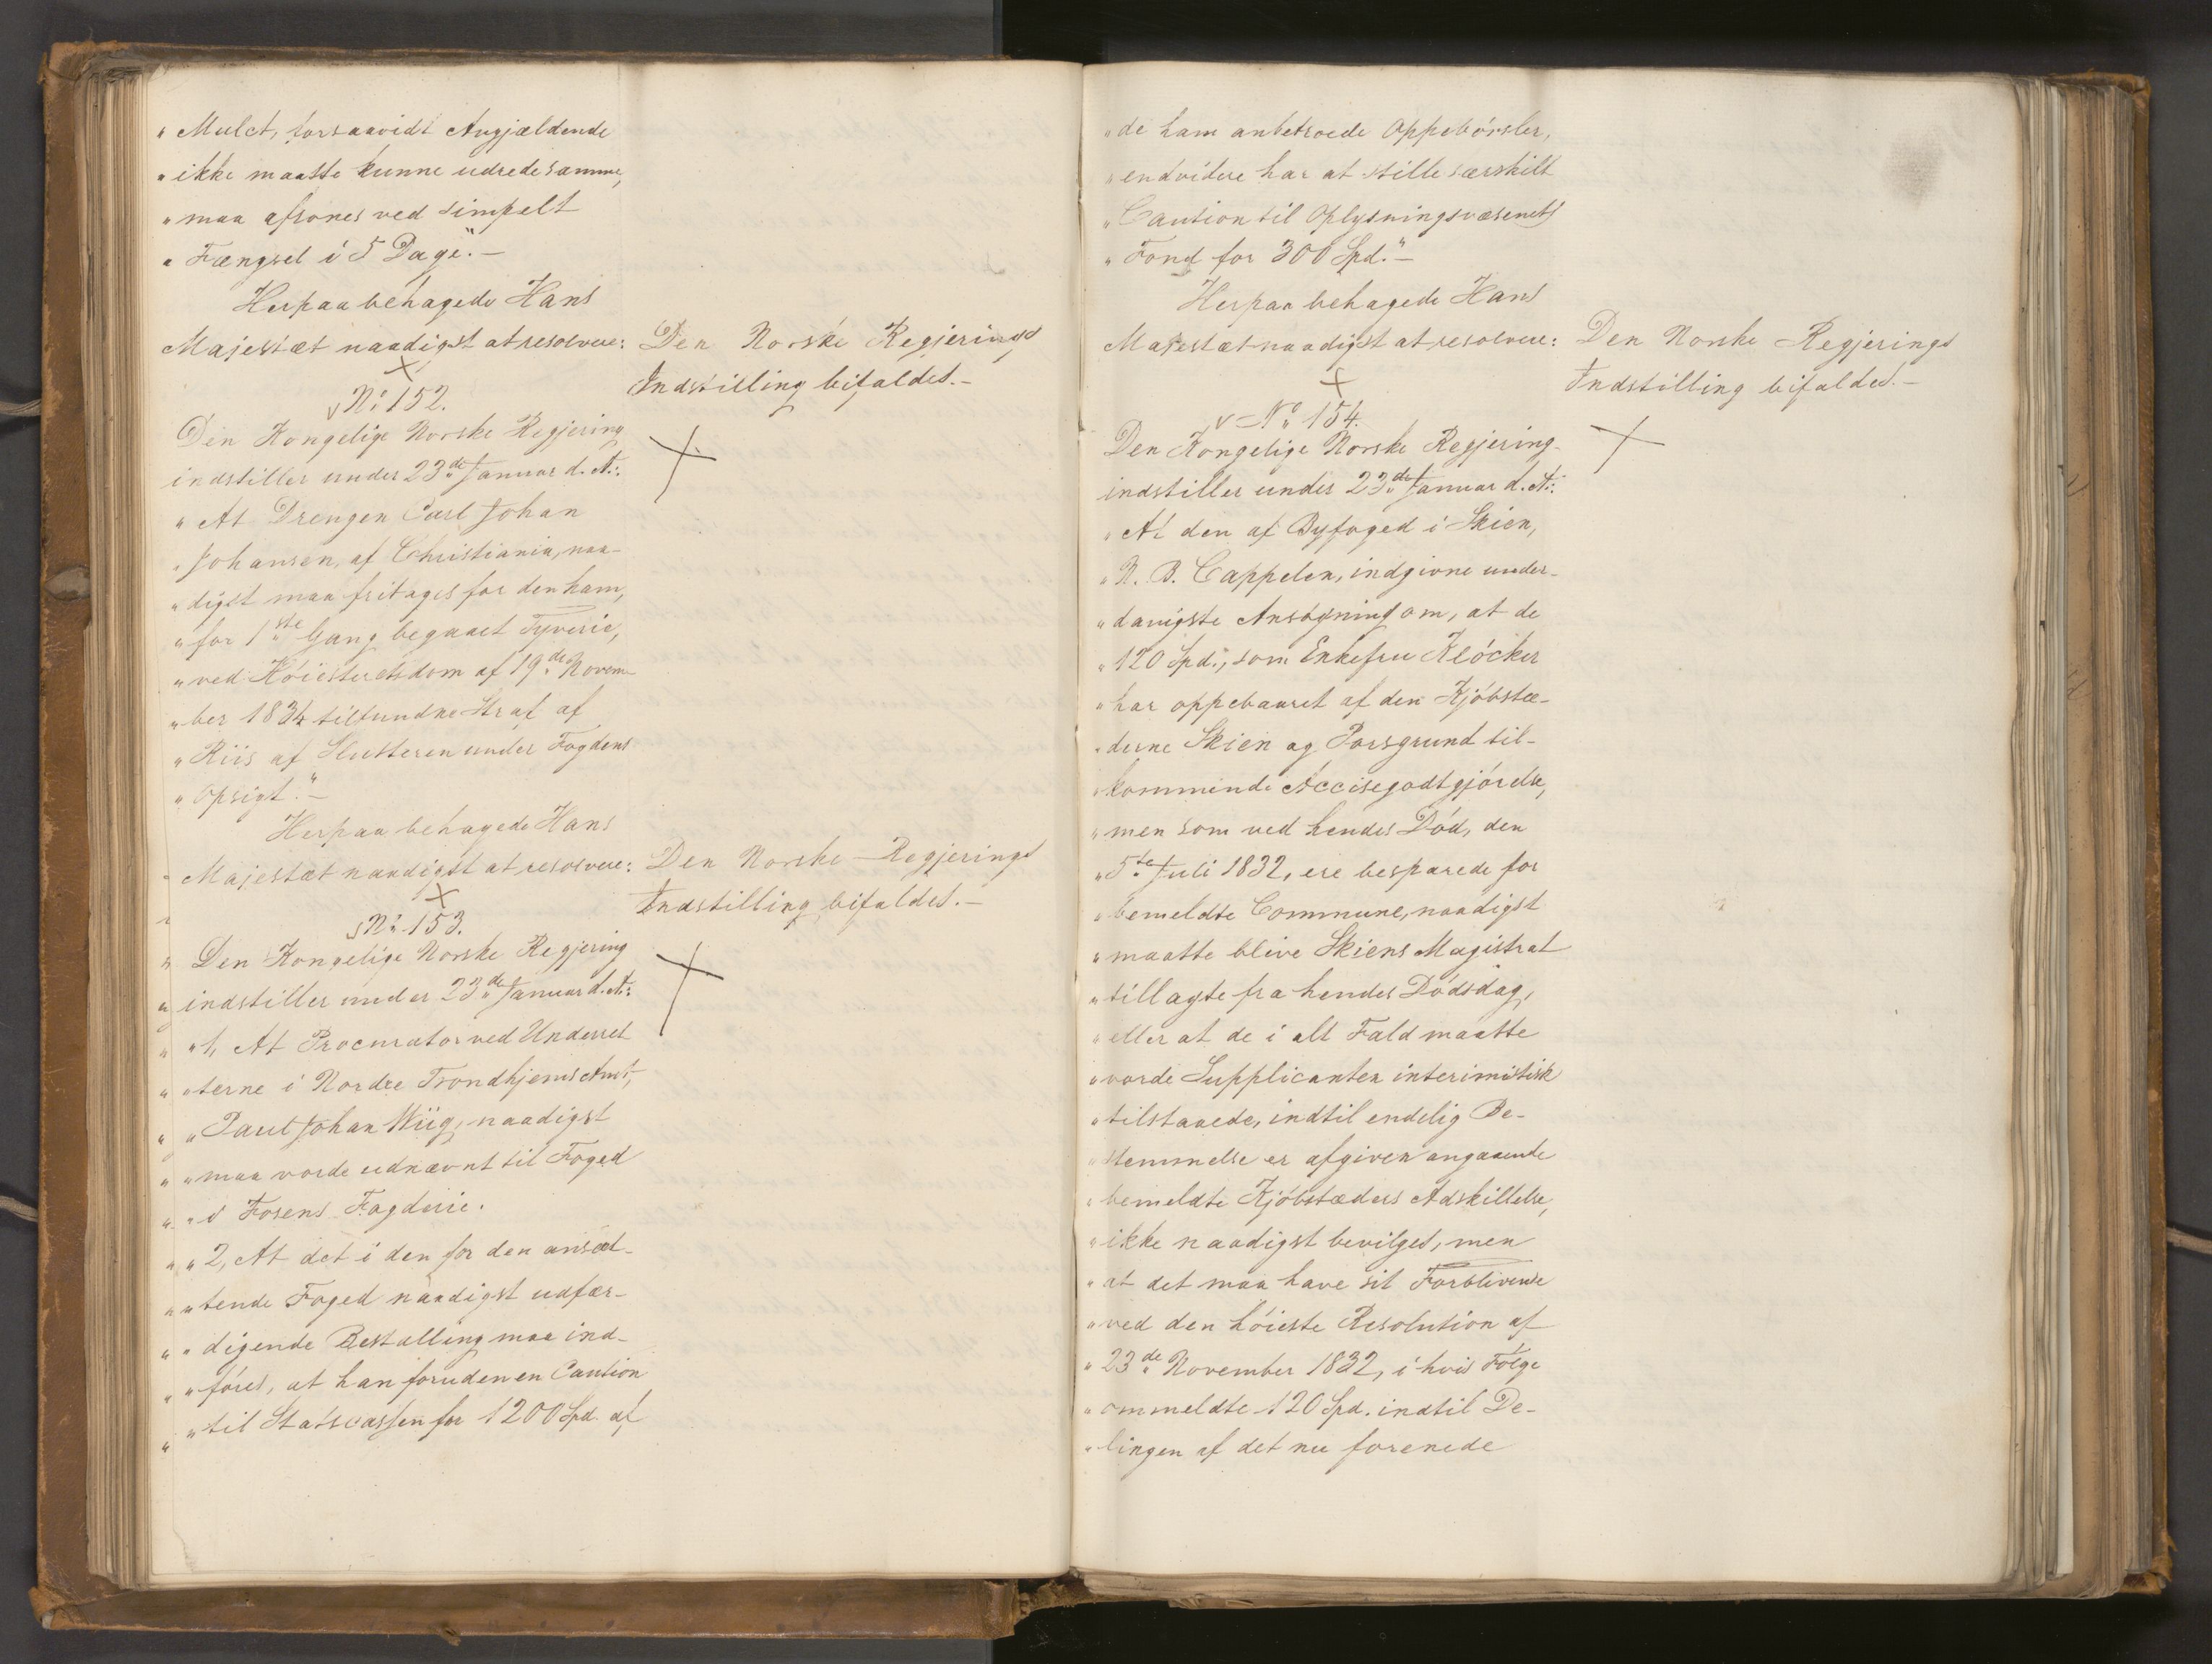 " Mulct, forsaavidt Angjældende
" ikke maatte kunne udrede samme,
" maa afsones ved simpelt
" Fængsel i 5 Dage". -
Herpaa behagede Hans
Majestæt naadigst at resolvere:
Den Norske Regjerings
Indstilling bifaldes. -
No 152.
Den Kongelige Norske Regjering
indstiller under 23de Januar d. A.:
" At Drengen Carl Johan
" Johansen, af Christiania, naa-
" digst maa fritages for den ham,
" for 1ste Gang begaaet Tyverie,
" ved Høiesteretsdom af 19de Novem-
" ber 1834 tilfundne Straf af
" Riis af Slutteren under Fogdens
" Opsigt." -
Herpaa behagede Hans
Majestæt naadigst at resolvere:
Den Norske Regjerings
Indstilling bifaldes. -
No 153.
" Den Kongelige Norske Regjering
" indstiller under 23de Januar d. A.:
" " 1, At Procurator ved Underret
" " terne i Nordre Trondhjems Amt,
" " Paul Johan Wiig, naadigst
" " maa vorde udnævnt til Foged
" " i Fosens Fogderie.
" " 2, At det i den for den ansæt-
" " tende Foged naadigst udfær-
" " digende Bestalling maa ind-
" " føres, at han foruden en Caution
" " til Statscassen for 1200 Spd. af
" de ham anbetroede Oppebørsler,
" endvidere har at stille særskilt
" Caution til Oplysningsvæsenets
" Fond for 300 Spd." -
Herpaa behagede Hans
Majestæt naadigst at resolvere:
Den Norske Regjerings
Indstilling bifaldes. -
No 154.
Den Kongelige Norske Regjering
indstiller under 23de Januar d. A.:
" At den af Byfoged i Skien,
" N. B. Cappelen, indgivne under-
" danigste Ansøgning om, at de
" 120 Spd., som Enkefru Kløcker
" har oppebaaret af den Kjøbstæ-
" derne Skien og Porsgrund til-
" kommende Accisegodtgjørelse,
" men som ved hendes Død, den
" 5te Juli 1832, ere besparede for
" bemeldte Commune, naadigst
" maatte blive Skiens Magistrat
" tillagte fra hendes Dødsdag,
" eller at de i alt Fald maatte
" vorde Supplicanten interimistisk
" tilstaaede, indtil endelig Be-
" stemmelse er afgiven angaaende
" bemeldte Kjøbstæders Adskillelse,
" ikke naadigst bevilges, men
" at det maa have sit Forblivende
" ved den høieste Resolution af
" 23de November 1832, i hvis Følge
" ommeldte 120 Spd. indtil De-
" lingen af det nu forenede